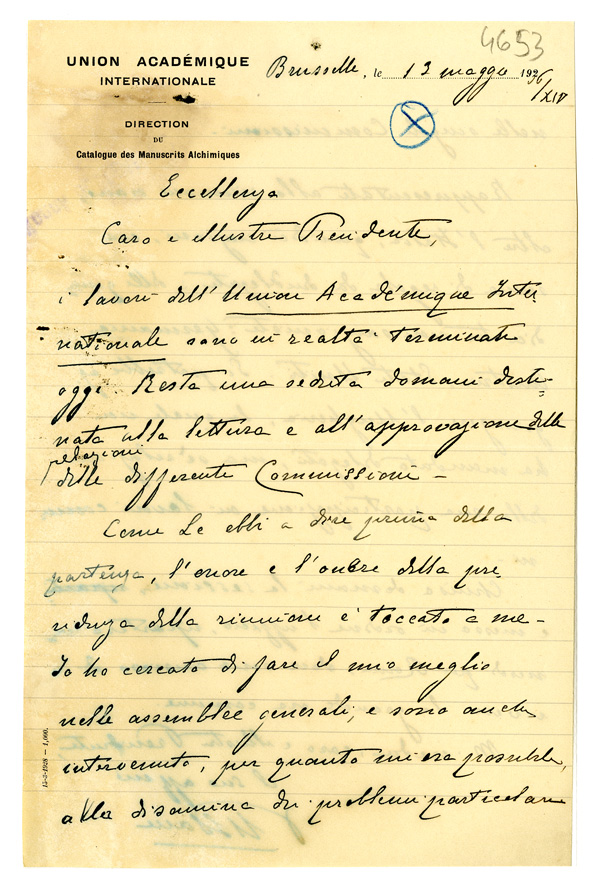 4653
UNION ACADÉMIQUE
INTERNATIONALE
Bruxelles, le 13 maggio 1936/XIV
DIRECTION
DU
Catalogue des Manuscrits Alchimiques
X
Eccellenza
Caro e illustre Presidente,
i lavori dell'Union Académique Inter
nationale sono in realtà terminati
oggi. Resta una seduta domani desti-
nata alla lettura e all'approvazione delle
relazioni
delle differenti Commissioni –
Come Le ebbi a dire prima della
partenza, l'onore e l'onere della pre-
sidenza della riunione è toccato a me –
Io ho cercato di fare il mio meglio
nelle assemblee generali, e sono anche
intervenuto, per quanto mi era possibile,
alla disamina dei problemi particolari
15-3-1928 — 1,000.